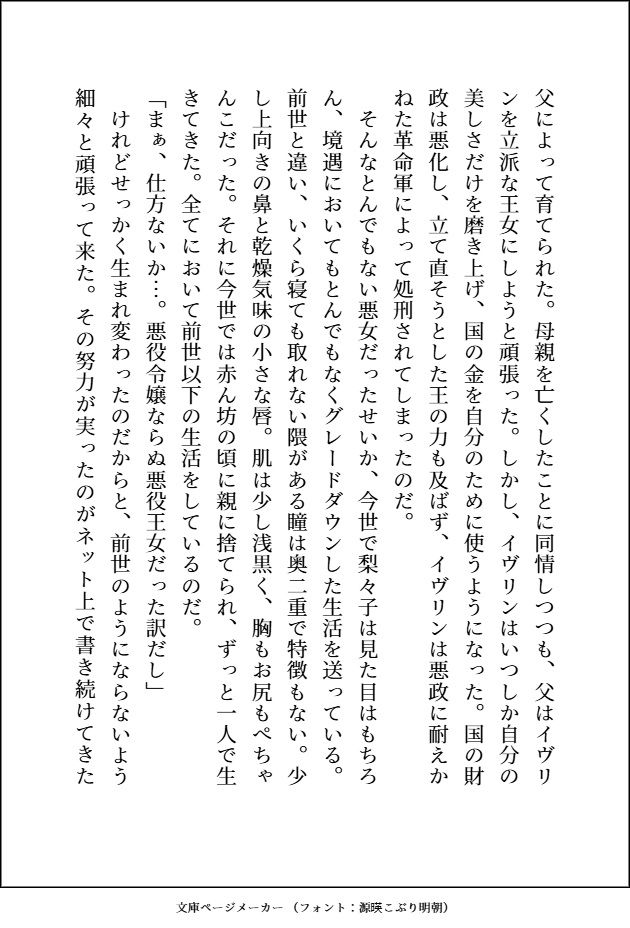 父によって育てられた。母親を亡くしたことに同情しつつも、父はイヴリ
ンを立派な王女にしようと頑張った。しかし、イヴリンはいつしか自分の
美しさだけを磨き上げ、国の金を自分のために使うようになった。国の財
政は悪化し、立て直そうとした王の力も及ばず、イヴリンは悪政に耐えか
ねた革命軍によって処刑されてしまったのだ。
　そんなとんでもない悪女だったせいか、今世で梨々子は見た目はもちろ
ん、境遇においてもとんでもなくグレードダウンした生活を送っている。
前世と違い、いくら寝ても取れない隈がある瞳は奥二重で特徴もない。少
し上向きの鼻と乾燥気味の小さな唇。肌は少し浅黒く、胸もお尻もぺちゃ
んこだった。それに今世では赤ん坊の頃に親に捨てられ、ずっと一人で生
きてきた。全てにおいて前世以下の生活をしているのだ。
「まぁ、仕方ないか…。悪役令嬢ならぬ悪役王女だった訳だし」
　けれどせっかく生まれ変わったのだからと、前世のようにならないよう
細々と頑張って来た。その努力が実ったのがネット上で書き続けてきた
文庫ページメーカー（フォント：源暎こぶり明朝）